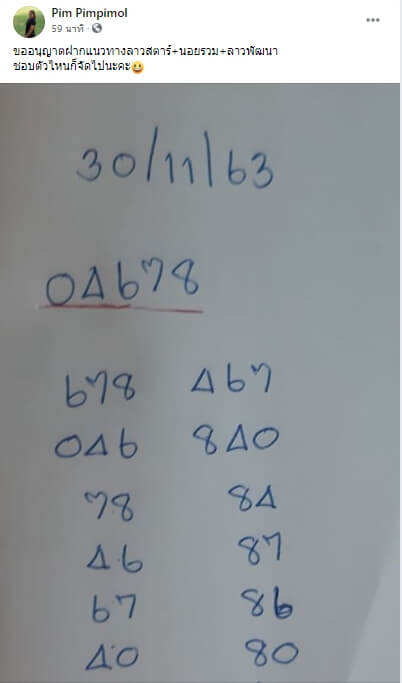 Pim Pimpimol
59 นาที ·
ขออนุญาตฝากแนวทางลาวสตาร์+นอยรวม+ลาวพัฒนา
ชอบตัวไหนก็จัดไปนะคะ😃
30/11/63
04678
678 467
046 840
78 84
46 87
67 86
40 80